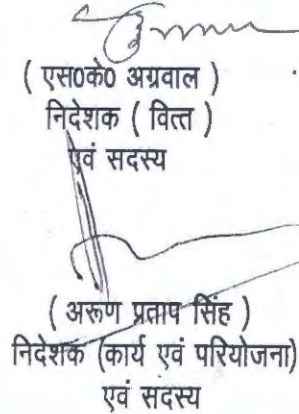 ( एस0के0 अग्रवाल )
निदेशक ( वित्त )
एवं सदस्य
( अरूण प्रताप सिंह )
निदेशक (कार्य एवं परियोजना)
एवं सदस्य